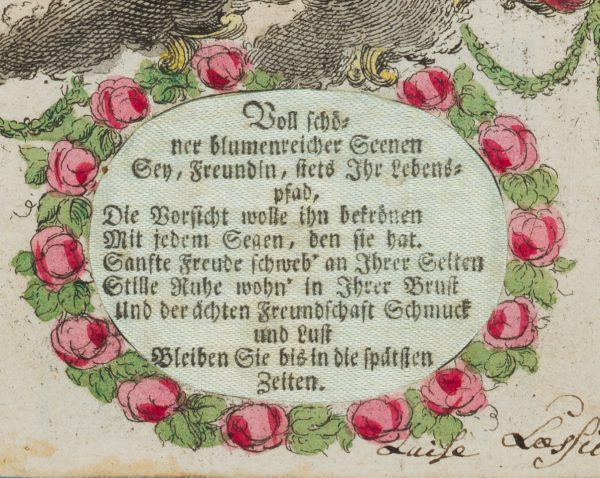 Voll schö-
ner blumenreicher Scenen
Sey, Freundin, stets Ihr Lebens-
pfad,
Die Vorsicht wolle ihn bekrönen
Mit jedem Segen, den sie hat.
Sanfte Freude schweb' an Ihrer Seiten
Stille Ruhe wohn' in Ihrer Brust
Und der ächten Freundschaft Schmuck
und Lust
Bleiben Sie bis in die spätsten
Zeiten.
Luise